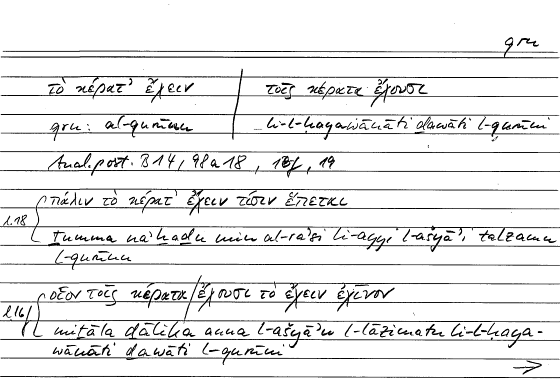 qrn
τὸ κέρατ' ἔχειν | τοῖς κέρατα ἔχουσι
qrn: al-qurūnu | li-l-ḥayawānāti ḏawāti l-qurūni
Anal. post. B 14, 98a18, 16f, 19
πάλιν τὸ κέρατ' ἔχειν τίσιν ἕπεται
l.18
ṯumma naʾḫuḏu min al-raʾsi li-ayyi l-ašyāʾi talzamu
l-qurūnu
οἷον τοῖς κέρατα / ἔχουσι τὸ ἔχειν ἐχῖνον
l.16/
miṯālu ḏālika anna l-ašyāʾa l-lāzimata li-l-ḥaya-
wānāti ḏawāti l-qurūni
→